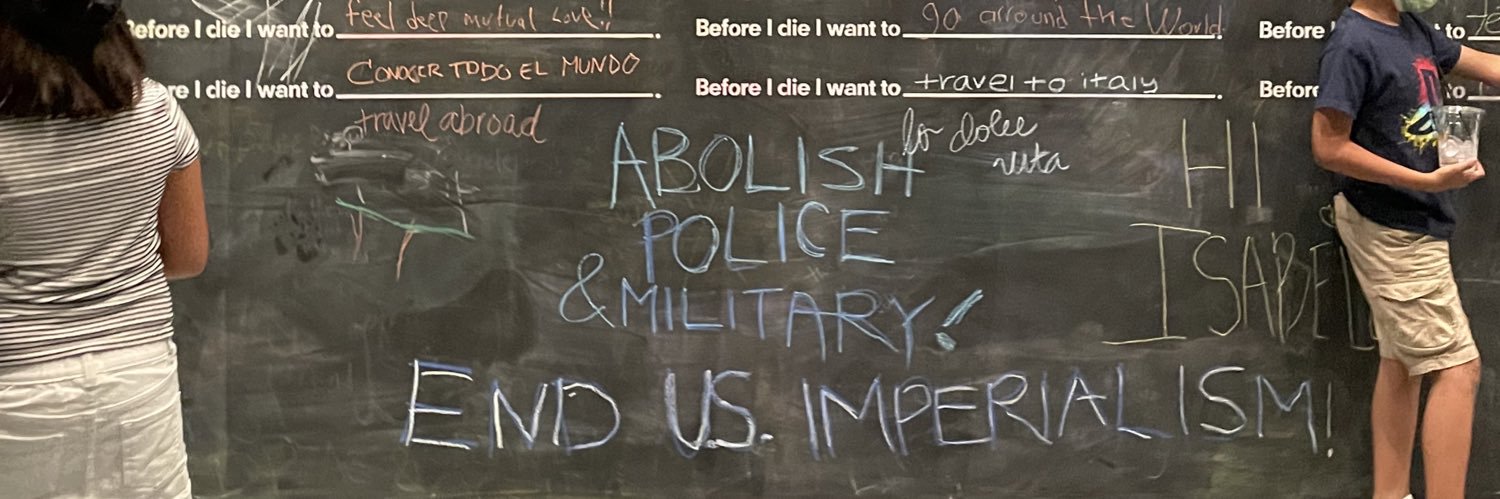 Before I die I want to feel deep mutual love!!.
Before I die I want to go arround the World.
Before I to
re I die I want to CONOCER TODO EL MUNDO.
Before I die I want to travel to italy.
Before
travel abroad
la dolce
vita
ABOLISH
POLICE
& MILITARY!
END U.S. IMPERIALISM!
HI
ISABEL